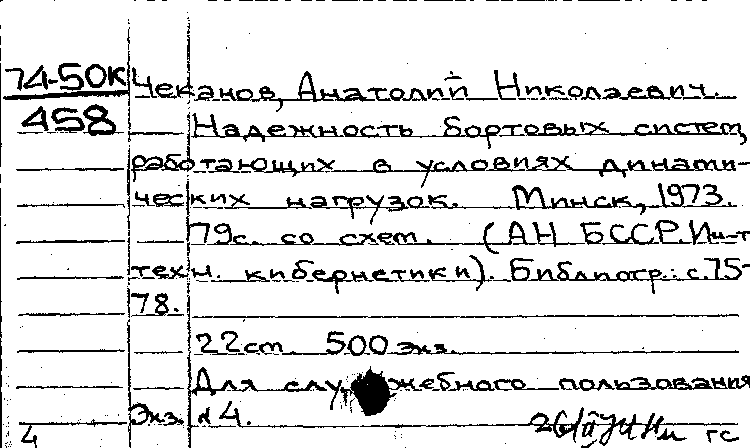 74-50К Чеканов, Анатолий Николаевич.
458 Надежность бортовых систем,
работающих в условиях динами-
ческих нагрузок. Минск, 1973.
79с. со схем. (АН БССР. Ин-т
техн. кибернетики). Библиогр.: с. 75-
78.
22см. 500 экз.
Для служебного пользования
Экз. №4.
4 гс